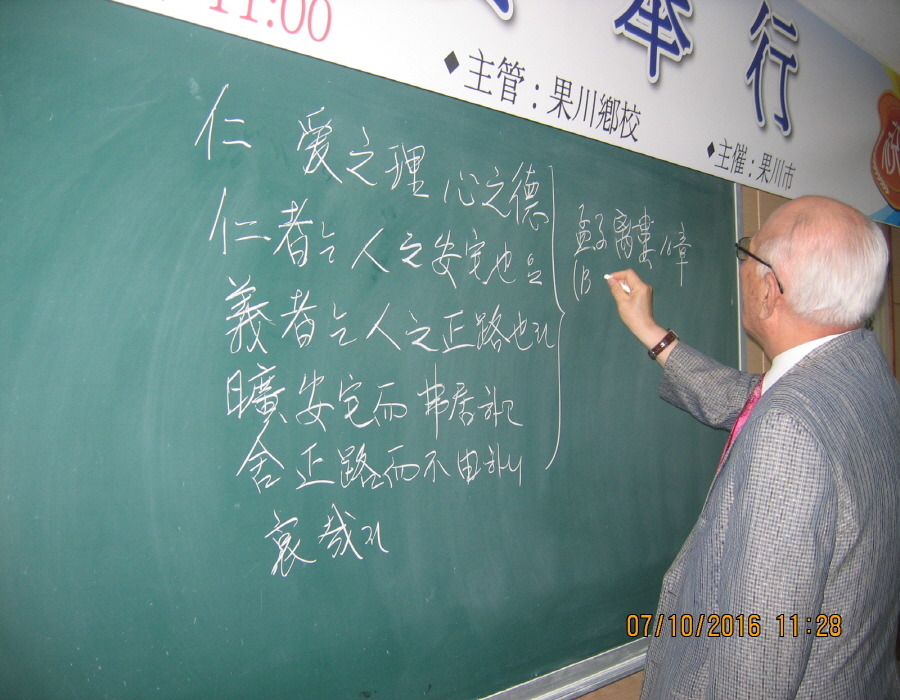 11:00
行
◆主管 : 果川鄕校
◆主催 : 果川市
仁 爱之理 心之德
仁者는 人之安宅也오
義者는 人之正路也라
曠安宅而弗居하며
舍正路而不由하니
哀哉라
孟子 離婁 10章
07/10/2016 11:28